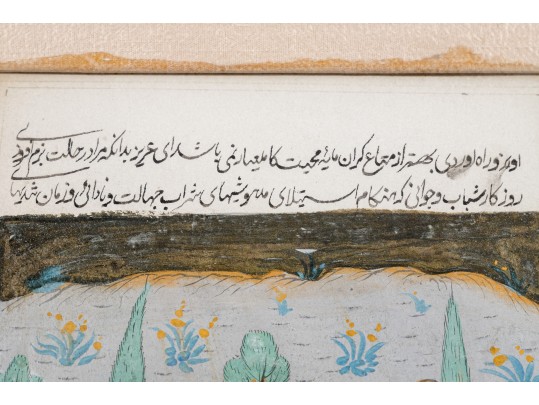 اویزو راه اوردی بهتر از متاع کران مایهٔ محبت کامل عیار نمی باشد ای عزیز بدانکه مرا در حالت بزم افروزی
روزکار شباب و جوانی که هنکام استیلای مدهوشیهای شراب جهالت و نادانی و زمان شدتها